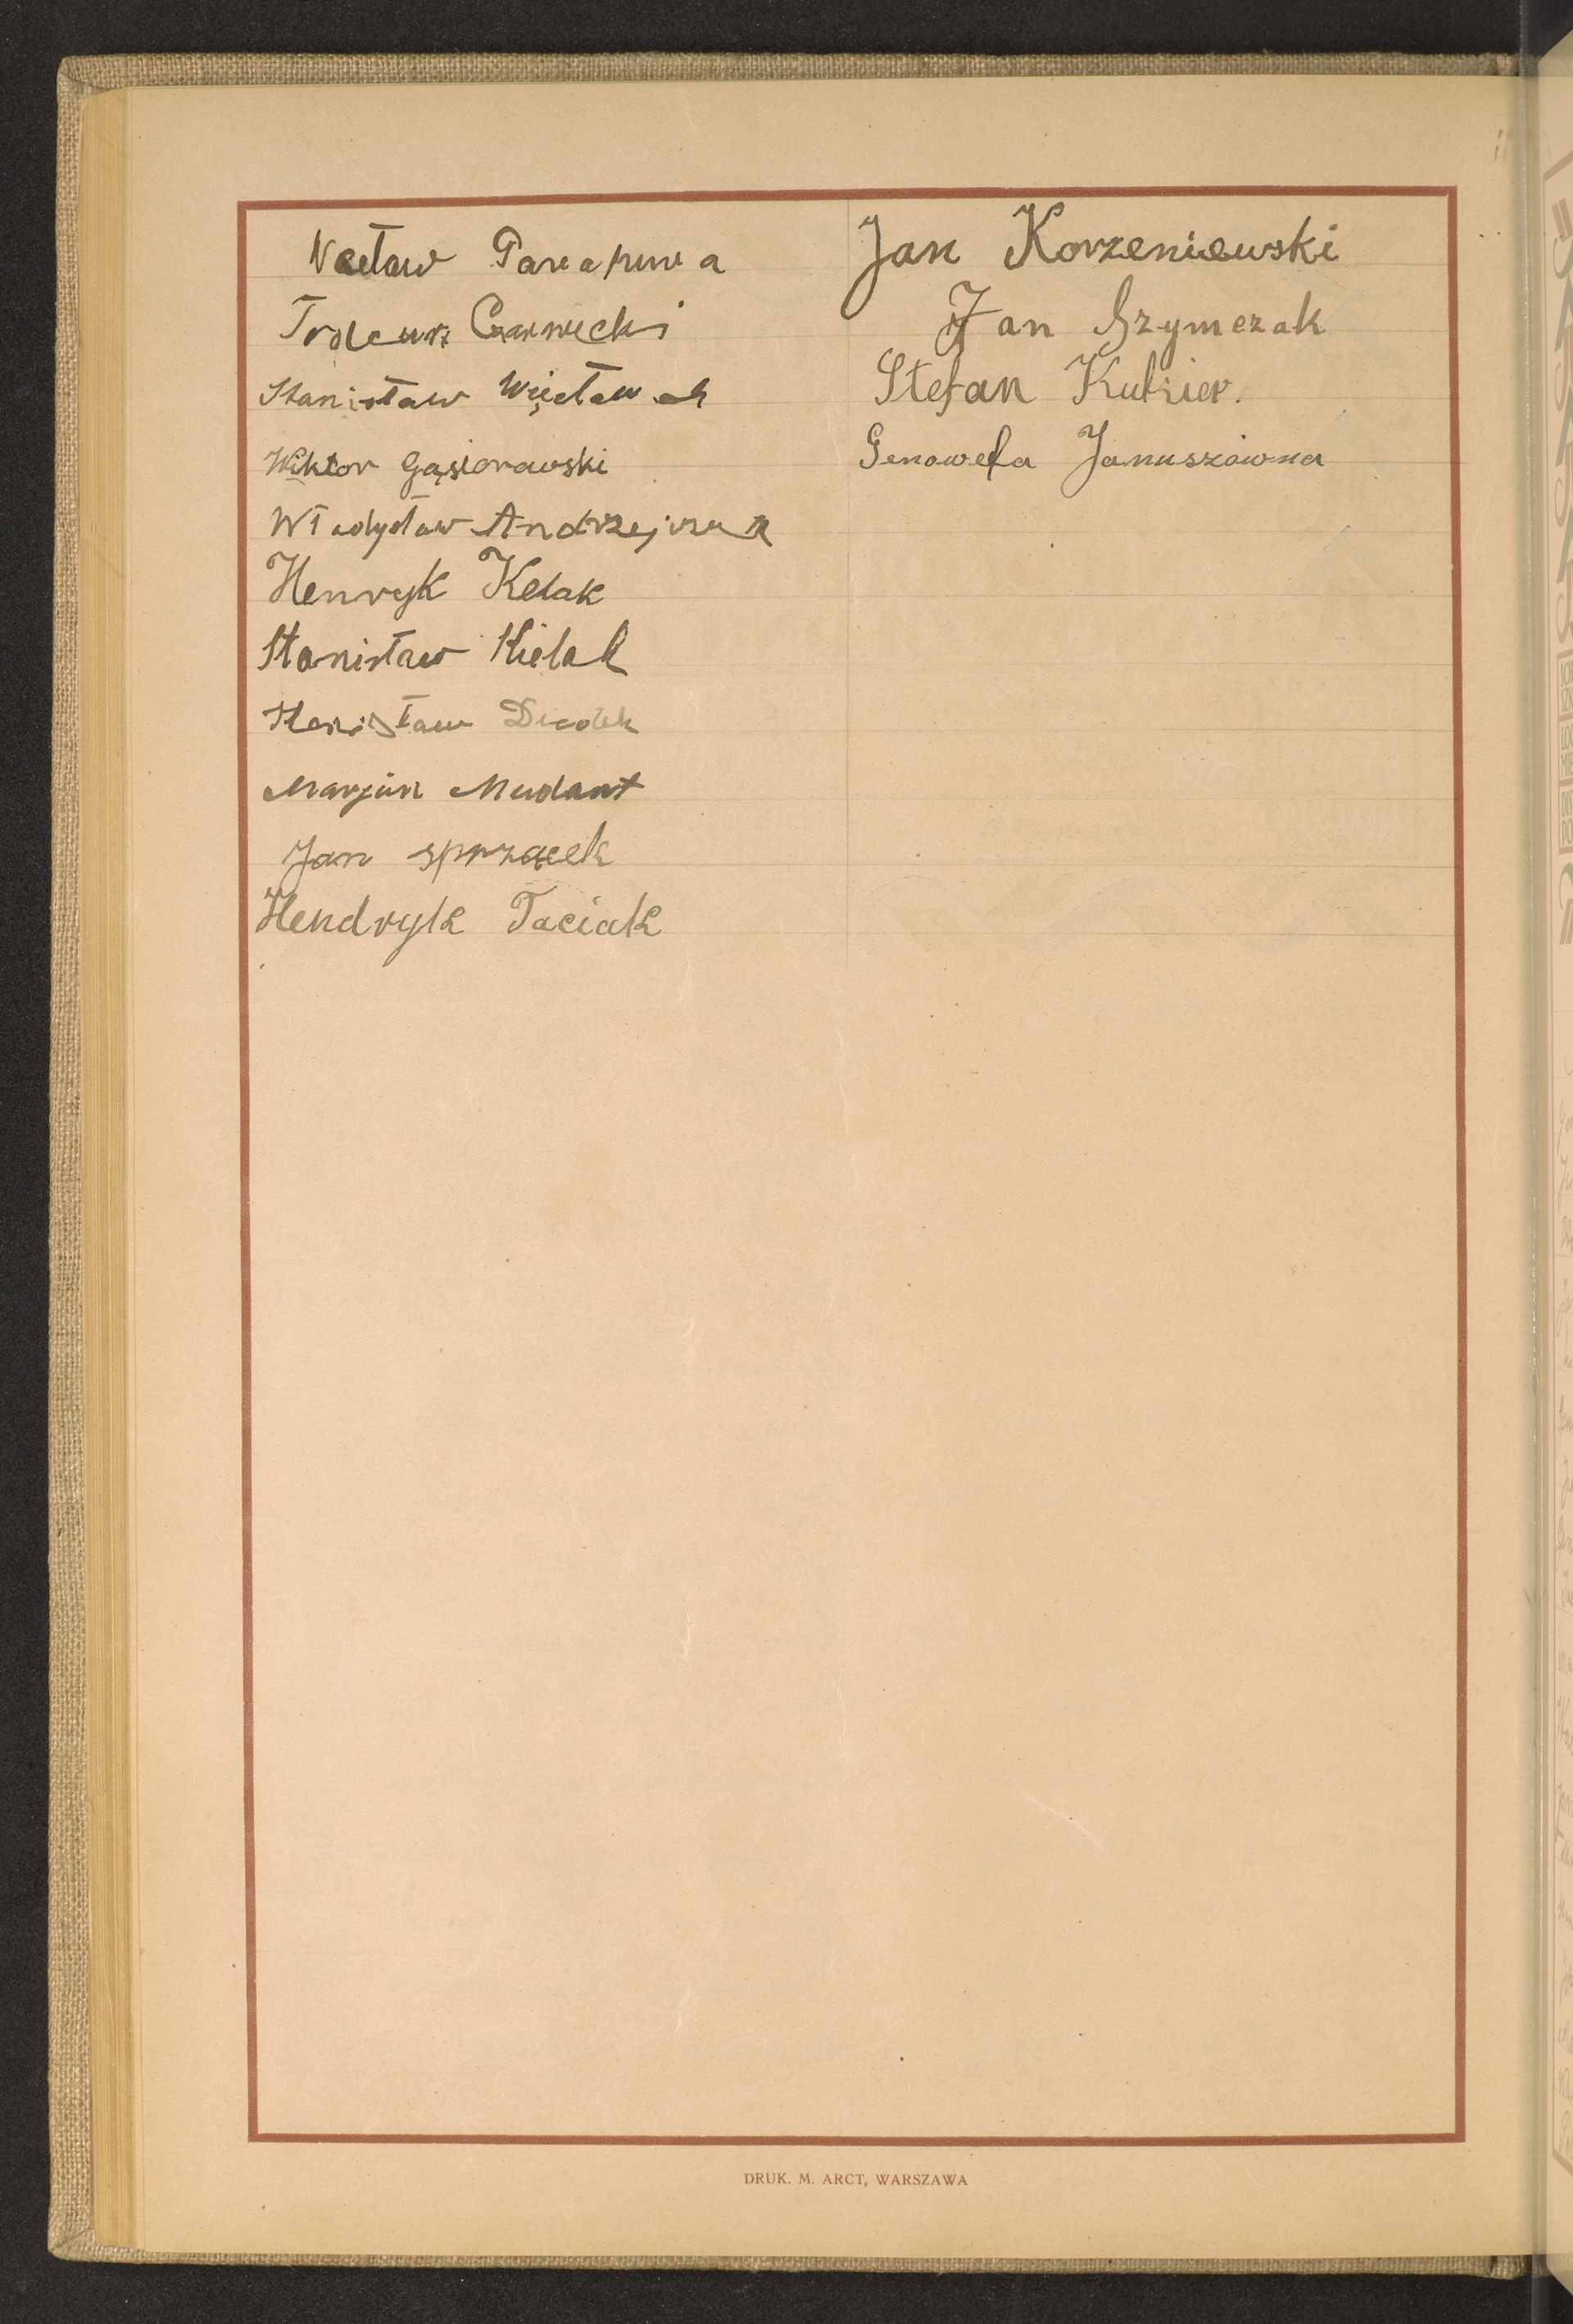 Wacław
Tadeusz Czarnecki
Stanisław Więcławek
Wiktor Gąsiorowski
Władysław Andrzejczak
Henryk Kelak
Stanisław Kielak
Stanisław
Marjan Mudant
Jan sprzącek
Hendryk Taciak
Jan Korzeniewski
Jan Szymczak
Stefan
Genowefa Januszówna
DRUK. M. ARCT, WARSZAWA